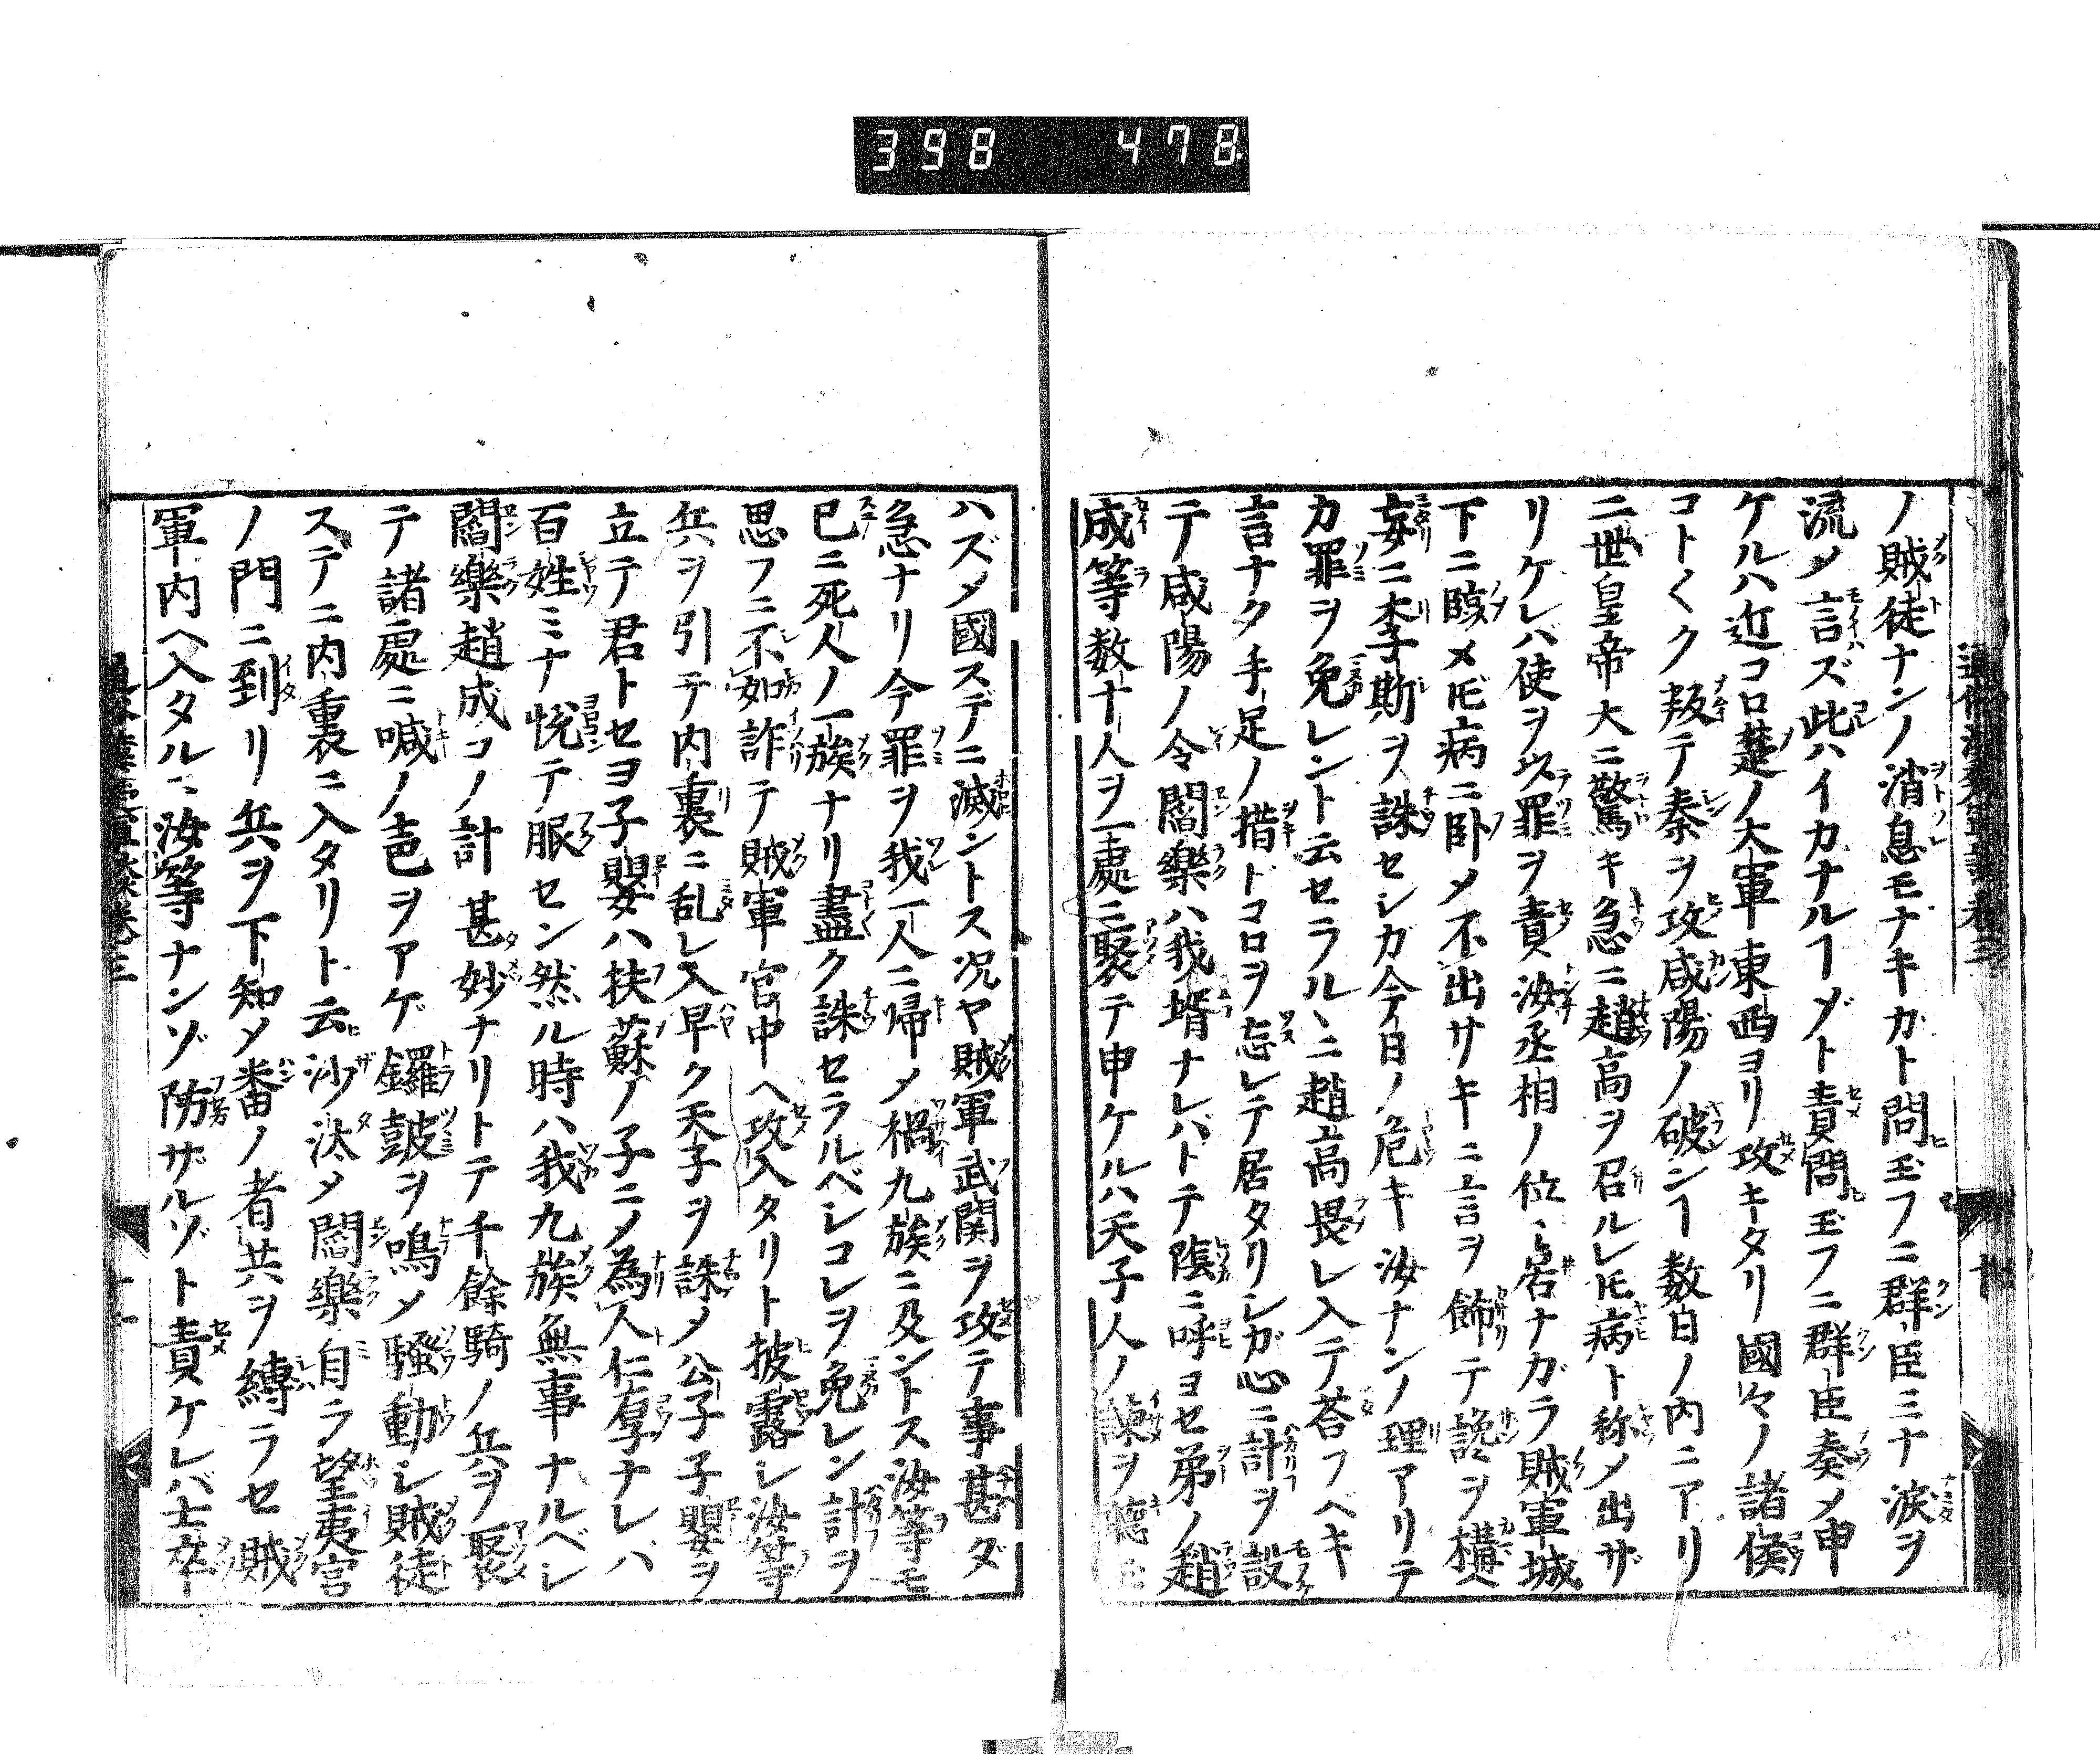 398 478
ノ賊徒ナンノ消息モナキカト問玉フニ群臣ミナ涙ヲ
流メ言ズ此ハイカナルヿゾト責問玉フニ群臣奏メ申
ケルハ近コロ楚ノ大軍東西ヨリ攻キタリ國々ノ諸侯
コト〱ク叛テ秦ヲ攻咸陽ノ破ンヿ数日ノ内ニアリ
二世皇帝大ニ驚キ急ニ趙高ヲ召ルレ𪜈病ト称メ出ザ
リケレハ使ヲ以罪ヲ責汝丞相ノ位ニ居ナガラ賊軍城
下ニ𪜈病ニ卧メ不出サキニ言ヲ飾テ讒ヲ構ヘ
妄ニ李斯ヲ誅セシガ今日ノ危キ汝ナンノ理アリテ
カ罪ヲ免レント云セラルヽニ趙高畏レ入テ荅フベキ
言ナク手足ノ措ドコロヲ忘レテ居タリシガ心ニ計ヲ設
テ咸陽ノ令閻樂ハ我壻ナレバトテ陰ニ呼ヨセ弟ノ趙
成等数十人ヲ一處ニ聚テ申ケルハ天子人ノ諫ヲ聴玉
ハズメ國スデニ滅ントス况ヤ賊軍武関ヲ攻テ事甚ダ
急ナリ今罪ヲ我一人ニ帰メ禍九族ニ及ントス汝等モ
已ニ死人ノ一族ナリ盡ク誅セラルベシコレヲ免レン計ヲ
思フニ不如詐テ賊軍宮中ヘ攻入タリト披露シ汝等
兵ヲ引テ内裏ニ乱レ入早ク天子ヲ誅メ公子子嬰ヲ
立テ君トセヨ子嬰ハ扶蘇ノ子ニメ為人仁厚ナレバ
百姓ミナ悦テ服セン然ル時ハ我九族無事ナルベシ
閻樂趙成コノ計甚妙ナリトテ千餘騎ノ兵ヲ聚
テ諸處ニ喊ノ声ヲアゲ鑼鼓ヲ鳴メ騒動シ賊徒
ステニ内裏ニ入タリト云沙汰メ閻樂自ラ望夷宮
ノ門ニ到リ兵ヲ下知メ番ノ者共ヲ縛ラセ賊
軍内ヘ入タルニ汝等ナンゾ防ザルゾト責ケレバ士卒